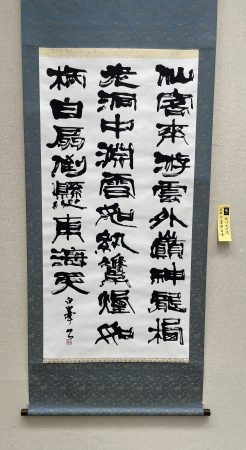 仙客來游雲外巓神龍栖
老洞中淵雪如紈素煙如
柄白扇倒懸東海天